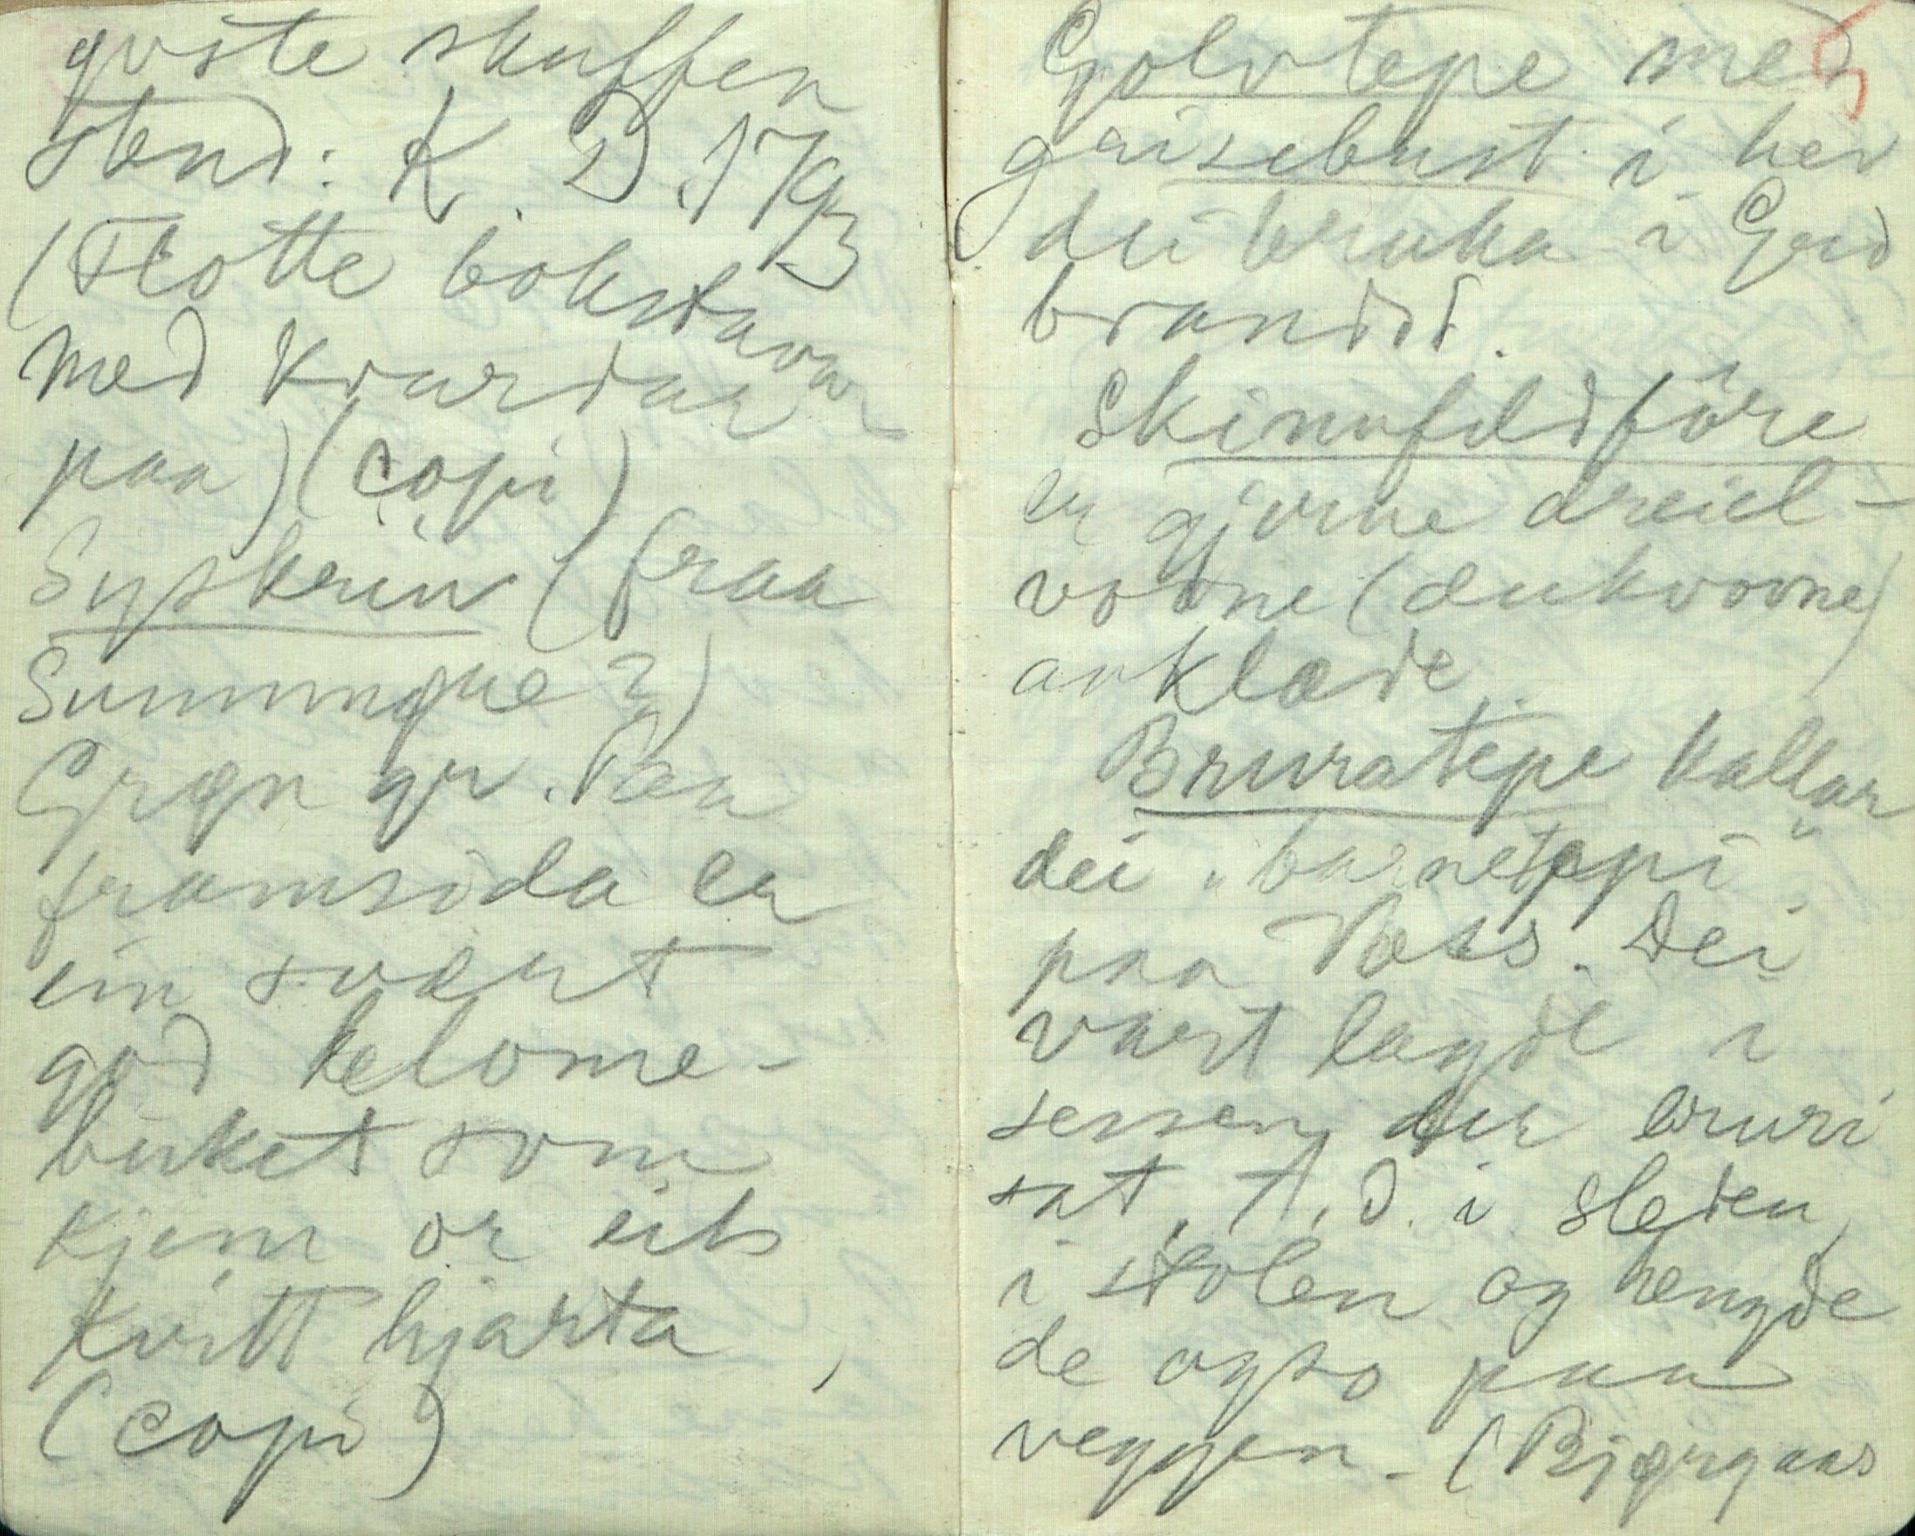 øvste skuffen
stend: K. D. 1793
(Flotte bokstavar
med krurdur
paa) (copi)
Syskrin (fraa
Sunnmøre?)
Grøn gr. Paa
framsida er
ein svært
god blome-
buket som
kjem or eit
kvitt hjarta,
(copi)
Golvtepe med
grisebust i hev
dei bruka i Gud
brandsd.
Skinnfeldføre
er gjerne dreiel-
vovne (dukvovne)
aaklæde.
Bruratepe kallar
dei "barneteppi"
paa Voss. Dei
vart lagde i
sessen der bruri
sat, t. d. i sleden,
i stolen og hengde
de ogso paa
veggen. (Bjørgaas